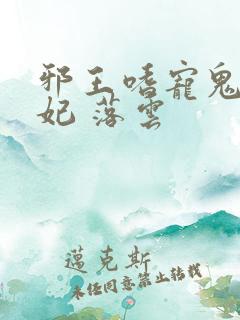 邪王嗜寵鬼
妃 落雲
邁克斯
未經同意禁止转載